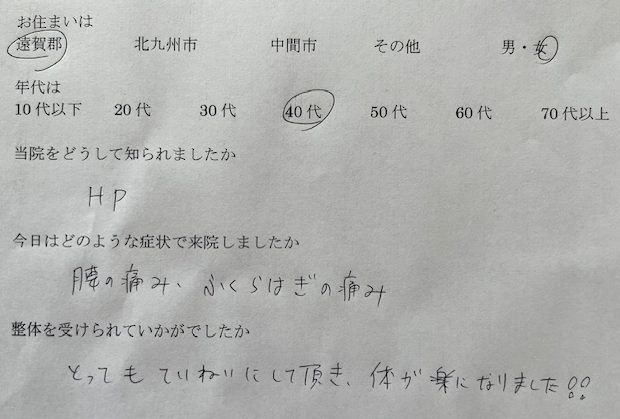 お住まいは
遠賀郡 北九州市 中間市 その他 男・女
年代は
10代以下 20代 30代 40代 50代 60代 70代以上
当院をどうして知られましたか
HP
今日はどのような症状で来院しましたか
腰の痛み、ふくらはぎの痛み
整体を受けられていかがでしたか
とってもていねいにして頂き、体が楽になりました!!